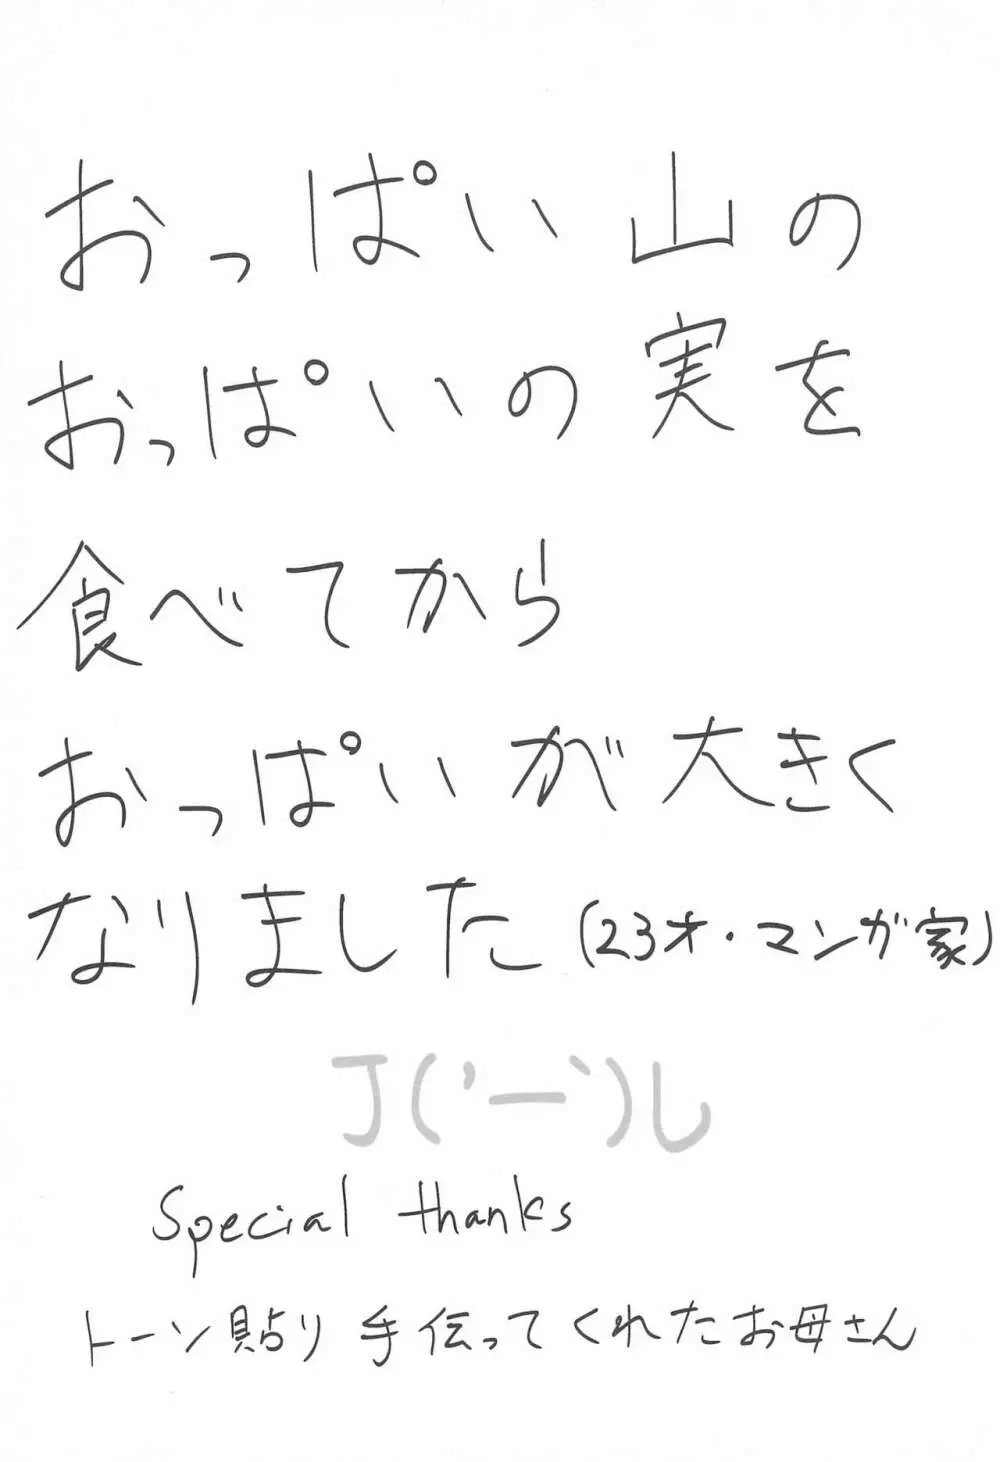 おっぱい山の
おっぱいの実を
食べてから
おっぱいが大きく
なりました(23才・マンガ家)
J('ー`)し
Special thanks
トーン貼り手伝ってくれたお母さん